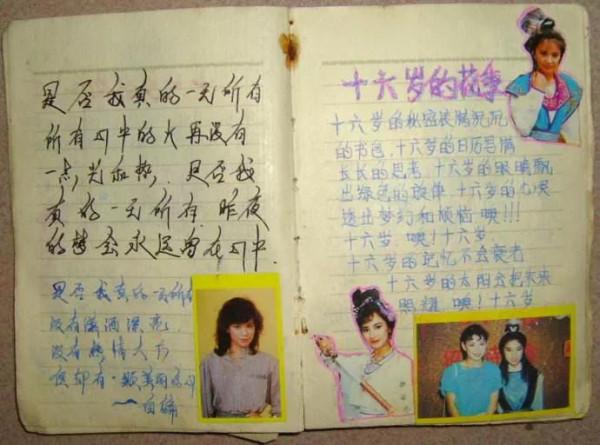 是否我真的一无所有
所有心中的火再没有
一点光和热. 是否我
真的一无所有 昨夜
的梦会永远留在心中.
是否我真的一无所有
没有潇洒漂亮
没有热情大方
但却有一颗美丽的心
——自编
十六岁的故事
十六岁的秘密装满沉沉
的书包 十六岁的日历写满
长长的思考 十六岁的眼睛飘
出绿色的旋律 十六岁的心灵
透出梦幻和烦恼 噢!!!
十六岁 噢!十六岁
十六岁的记忆不会衰老
十六岁的太阳会把未来
照耀 噢!十六岁